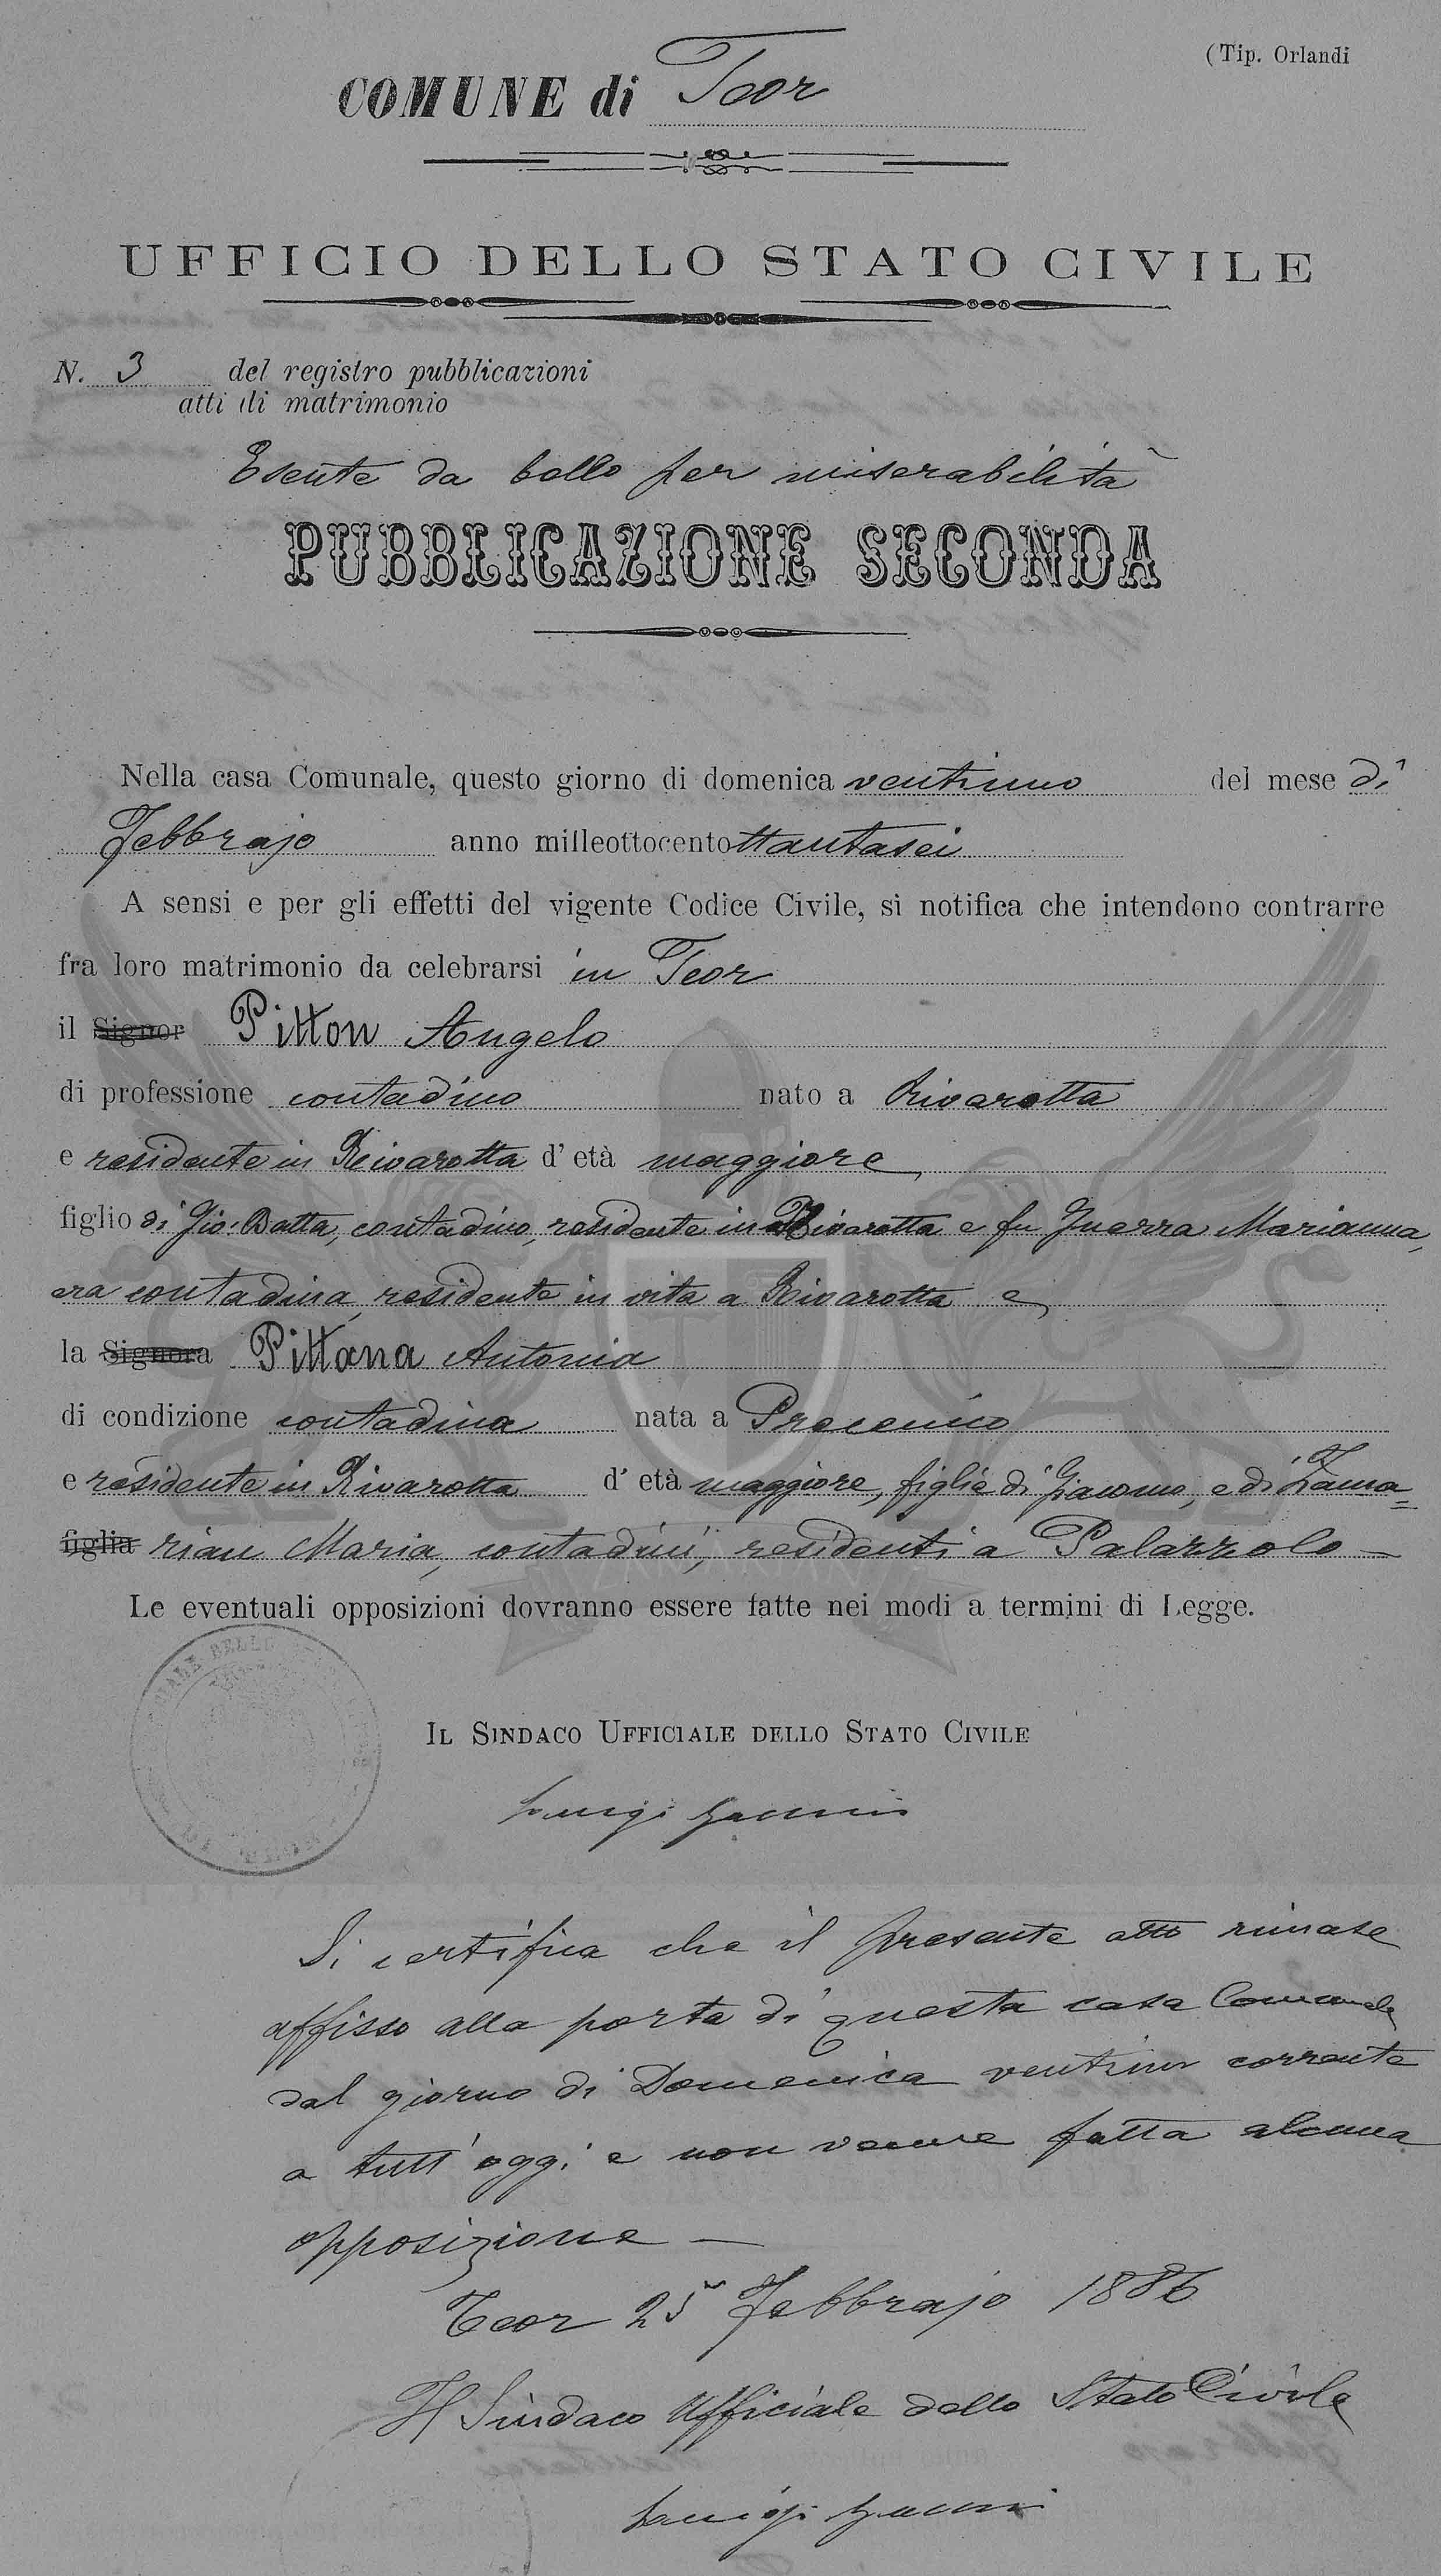 (Tip. Orlandi
COMUNE di Teor
UFFICIO DELLO STATO CIVILE
N. 3 del registro pubblicazioni
atti di matrimonio
Esente da bollo per miserabilità
PUBBLICAZIONE SECONDA
Nella casa Comunale, questo giorno di domenica ventuno del mese di
Febbrajo anno milleottocentottantasei
A sensi e per gli effetti del vigente Codice Civile, si notifica che intendono contrarre
fra loro matrimonio da celebrarsi in Teor
il Signor Pitton Angelo
di professione contadino nato a Rivarotta
e residente in Rivarotta d' età maggiore
figlio di Gio: Batta, contadino, residente in Rivarotta e fu Guerra Marianna,
era contadina, residente in vita a Rivarotta e
la Signora Pittana Antonia
di condizione contadina nata a Precenico
e residente in Rivarotta d' età maggiore, figlia di Giacomo, e di Zama=
figlia rian Maria, contadini, residenti a Palazzolo —
Le eventuali opposizioni dovranno essere fatte nei modi a termini di Legge.
IL SINDACO UFFICIALE DELLO STATO CIVILE
Luigi
Si certifica che il presente atto rimase
affisso alla porta di questa casa Comunale
dal giorno di Domenica ventuno corrente
a tutt'oggi e non venne fatta alcuna
opposizione —
Teor 25 Febbrajo 1886
Il Sindaco Ufficiale dello Stato Civile
Luigi